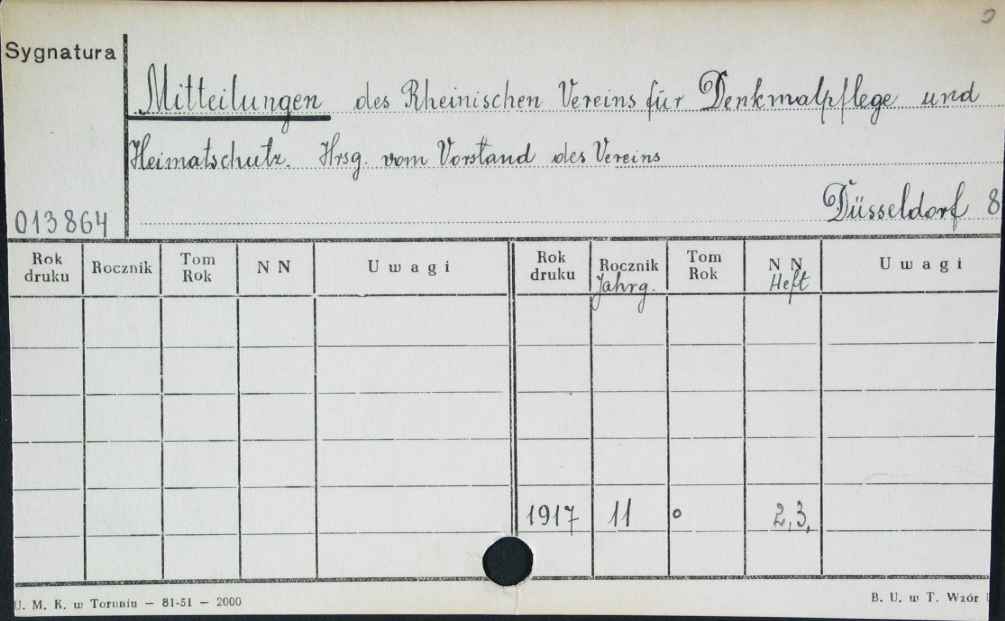 Sygnatura
Mitteilungen des Rheinischen Vereins für Denkmalpflege und
Heimatschutz. Hrsg. vom Vorstand des Vereins
Düsseldorf 8
013864
Rok druku Rocznik Tom Rok N N Uwagi Rok druku Rocznik Jahrg. Tom Rok N N Heft Uwagi
1917 11 o 2,3,
U. M. K. w Toruniu — 81-51 — 2000
B. U. w T. Wzór